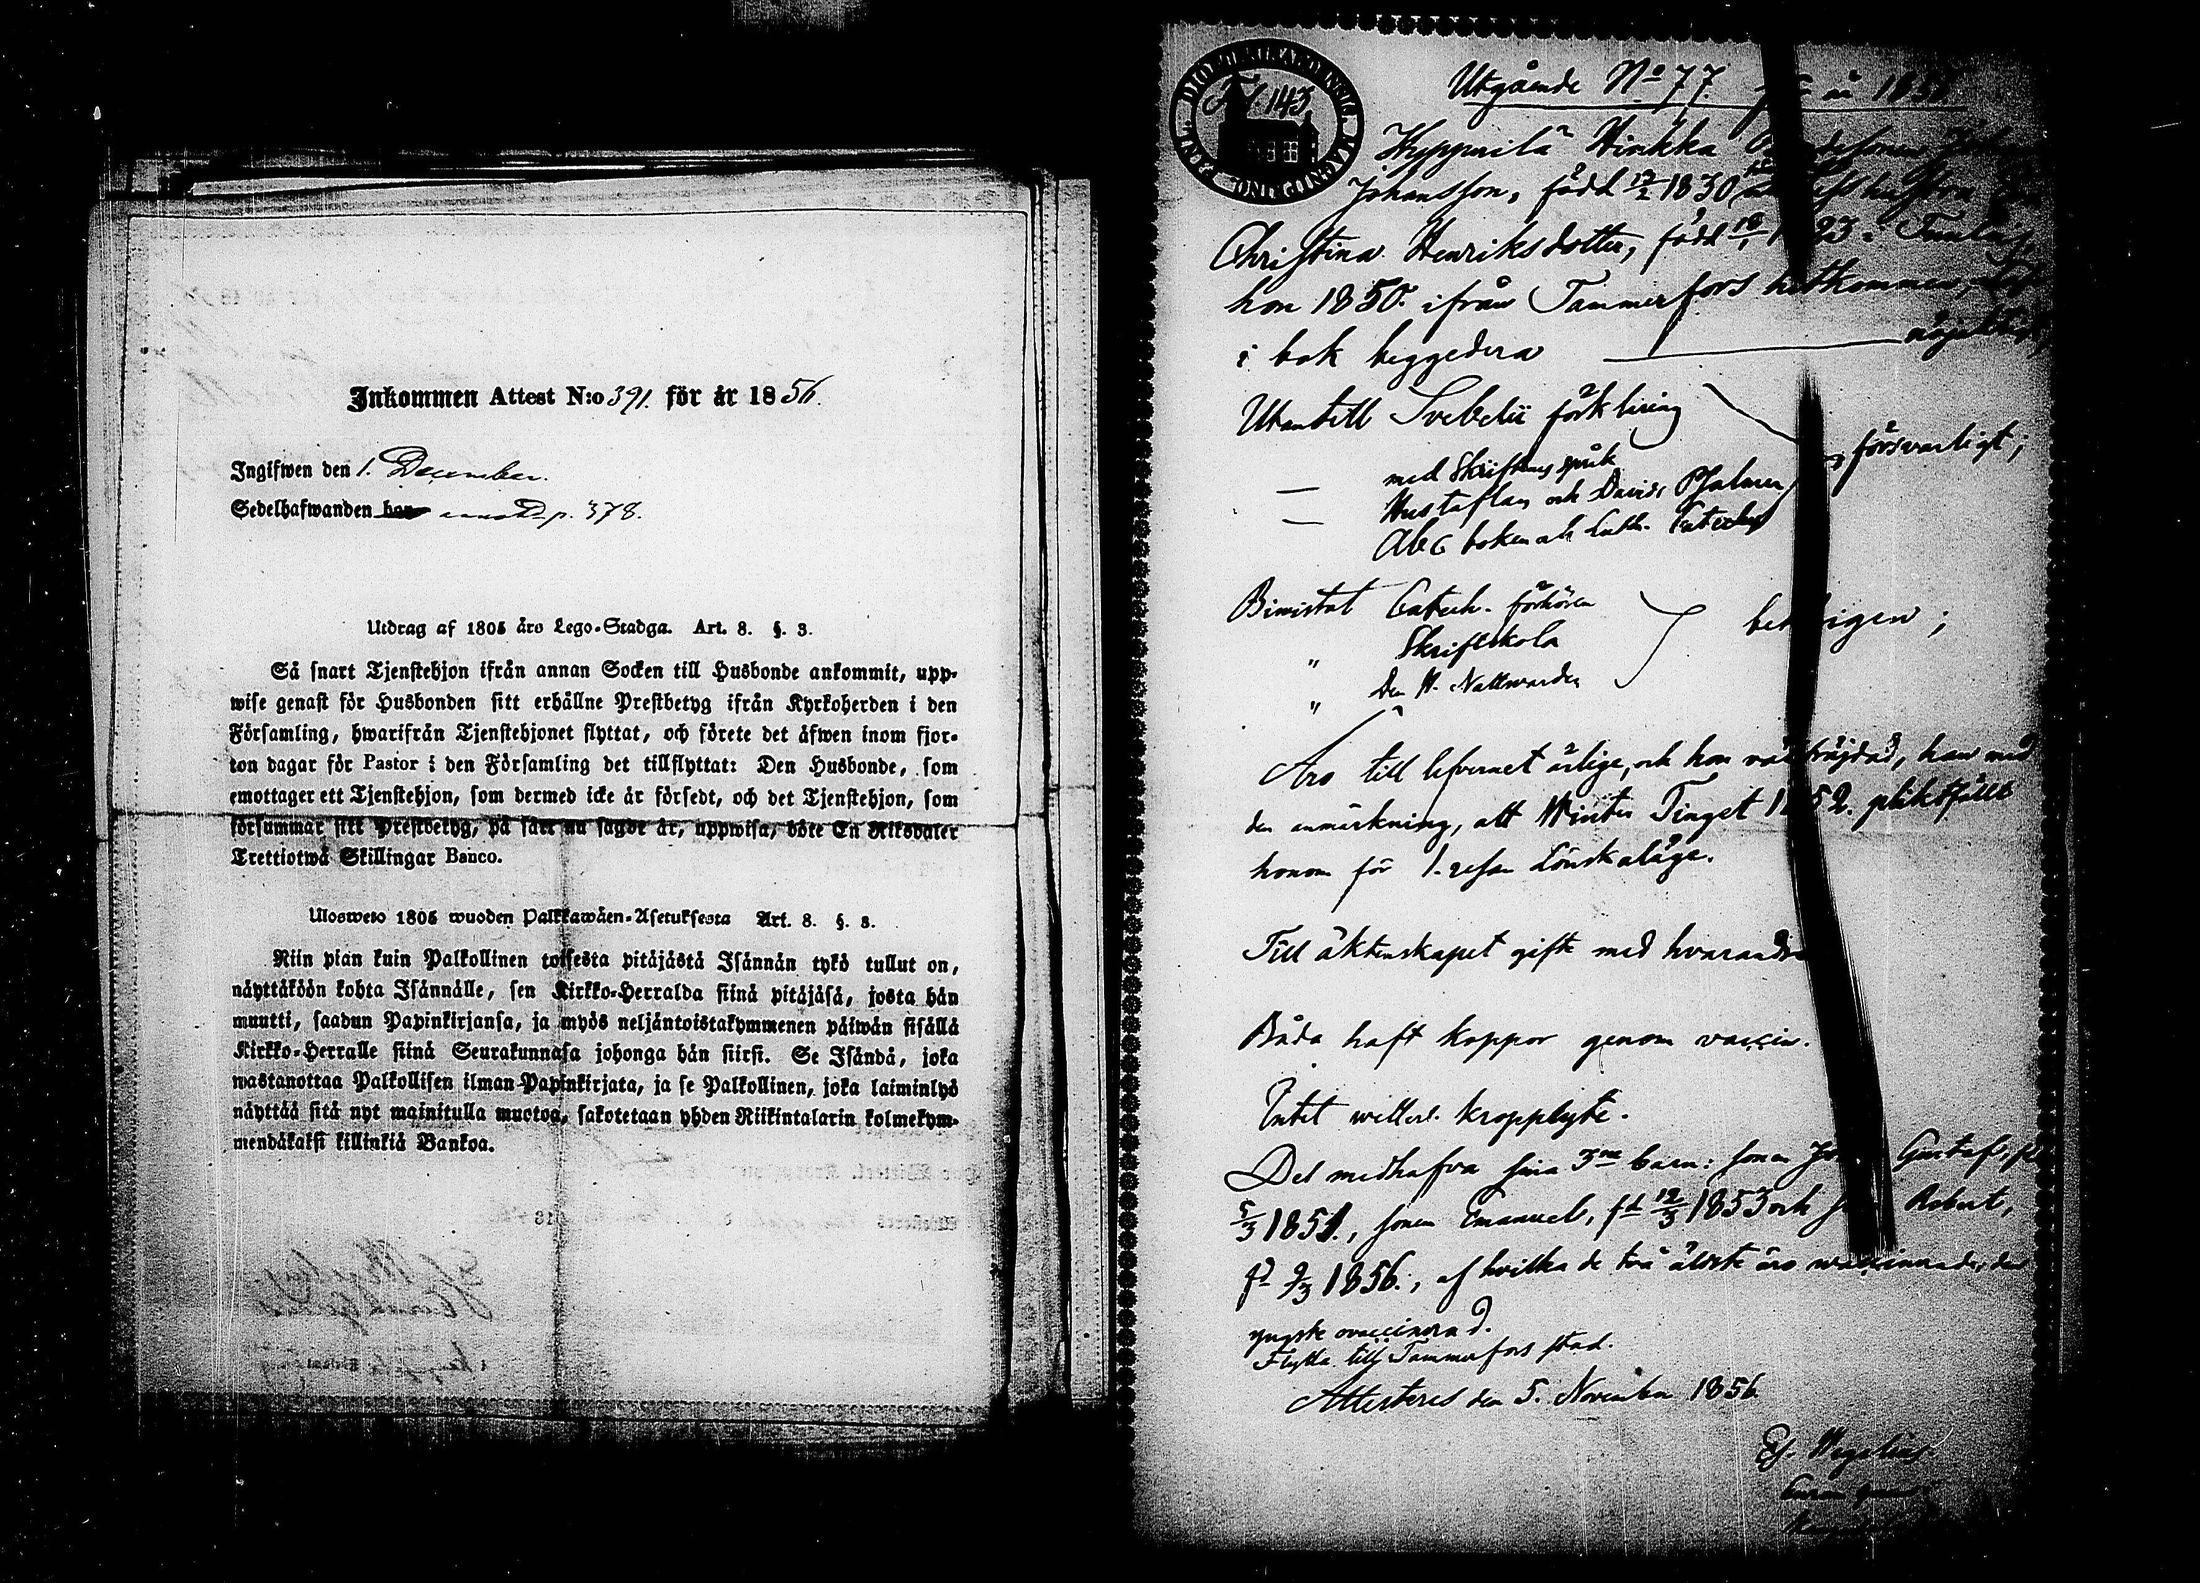 Inkommen Attest N:o 391. för år 1856.
Ingifwen den 1. December.
Sedelhafwanden p. 378.
Utdrag af 1805 års Lego-Stadga. Art. 8. §. 3.
Så snart Tjenstehjon ifrån annan Socken till Husbonde ankommit, upp-
wise genast för Husbonden sitt erhållne Prestbetyg ifrån Kyrkoherden i den
Församling, hwarifrån Tjenstehjonet flyttat, och förete det äfwen inom fjor-
ton dagar för Pastor i den Församling det tillflyttat: Den Husbonde, som
emottager ett Tjenstehjon, som dermed icke är försedt, och det Tjenstehjon, som
försummar sitt Prestbetyg, på sätt nu sagdt är, uppwisa, böte En Riksdaler
Trettiotwå Skillingar Banco.
Ulosweto 1805 wuoden Palkkawäen-Asetuksesta Art. 8. §. 3.
Niin pian kuin Palkollinen toisesta pitäjästä Isännän tykö tullut on,
näyttäköön kohta Isännälle, sen Kirkko-Herralda siinä pitäjäsä, josta hän
muutti, saadun Papinkirjansa, ja myös neljäntoistakymmenen päiwän sisällä
Kirkko-Herralle siinä Seurakunnasa johonga hän siirsi. Se Isändä, joka
wastanottaa Palkollisen ilman Papinkirjata, ja se Palkollinen, joka laiminlyö
näyttää sitä nyt mainitulla muotoa, sakotetaan yhden Riikintalarin kolmekym-
mendäkaksi killinkiä Bankoa.
143
Utgående No 77. år 1856
Hyppärilä Hinkka
Johansson, född 17/2 1830
Christina Henriksdotter, född
hon 1850. ifrån Tammerfors hitkommen,
i bok beggedera
Utantill Svebelii förklaring
med Skriftens språk försvarligt;
— Hustaflan och Davids Psalmer
— Abc boken och Luth. Cateches
Biwistat Catech. förhören
" Skriftskola
" Den H. Nattwarden
Äro till lefvernet ärlige, och hon han med
den anmärkning, att Winter Tinget 1852. pliktfällt
honom för 1. resan Lönskaläge.
Till äktenskapet gifte med hvarandra
Båda haft koppor genom vaccin.
Intet witterl. kropplyte.
Del medhafva sina 3ne barn: sonen Gustaf,
5/3 1851., sonen Emanuel, fd 12/3 1853 och Robert,
fd 9/3 1856., af hvilka de två äldste äro vaccinerade, den
yngste ovaccinerad.
Flytta till Tammerfors stad.
Attesteras den 5. November 1856.